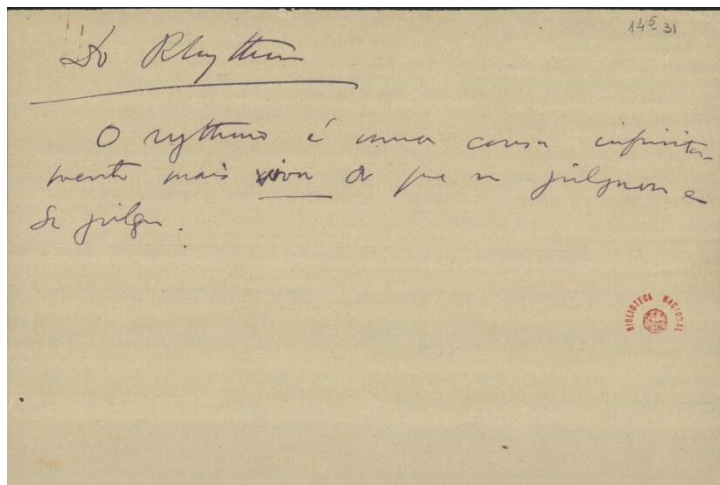 14⁵-31
Do Rhythmo
O rythmo é uma cousa infinita-
mente mais viva do que se julgava e
se julga.
BIBLIOTECA NACIONAL